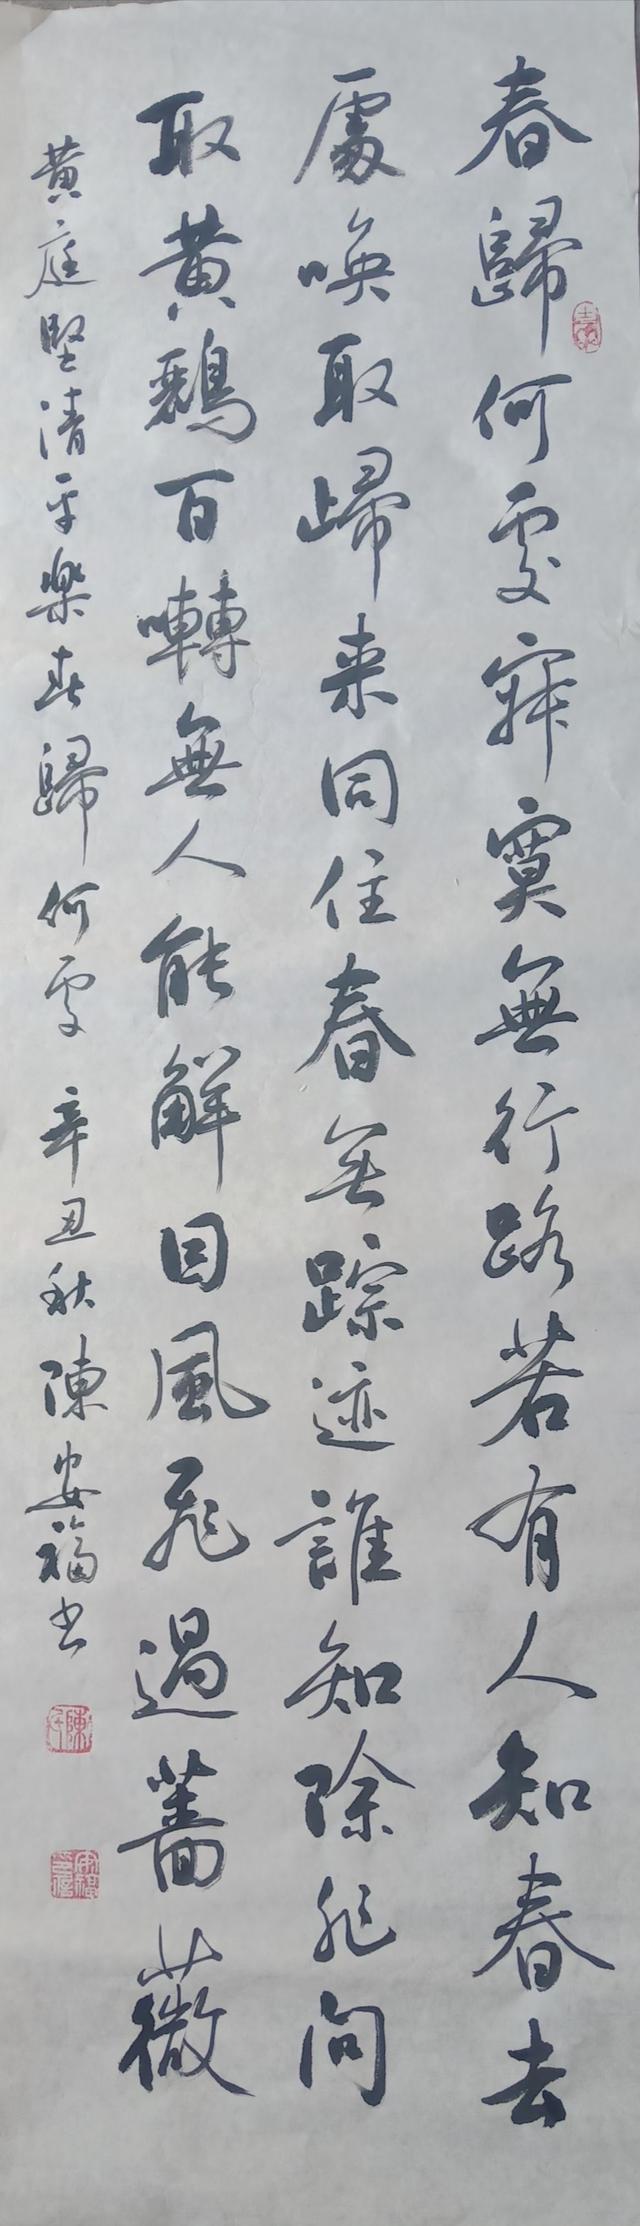 春歸何處寂寞無行路若有人知春去
處喚取歸来同住春無踪迹誰知除非問
取黄鸝百囀無人能解因風飛過薔薇
黄庭堅清平樂春歸何處 辛丑秋陳安福书